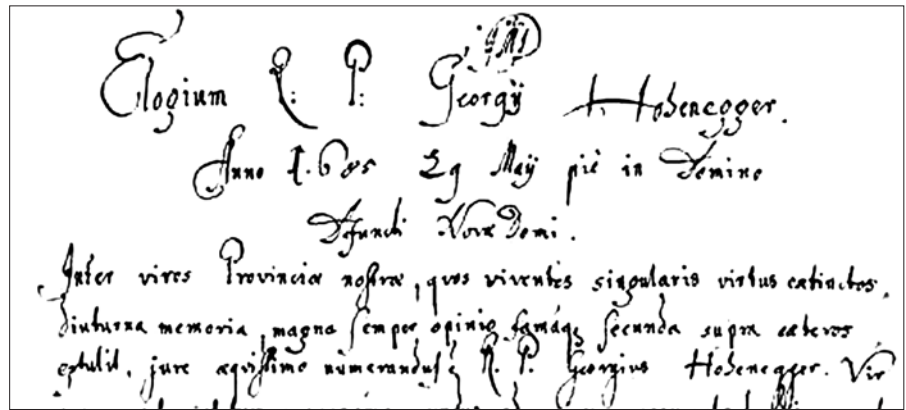 Elogium R: P: Georgÿ Hohenegger.
Anno 1.685 29 Maÿ piè in Domino
Defuncti Novæ Domi.
Inter viros Provinciæ nostræ, quos viventes singularis virtus extinctos,
diuturna memoria, magna semper opinio famáq; secunda supra cæteros
extulit, jure æquissimo numerandus é R. P. Georgius Hohenegger. Vir